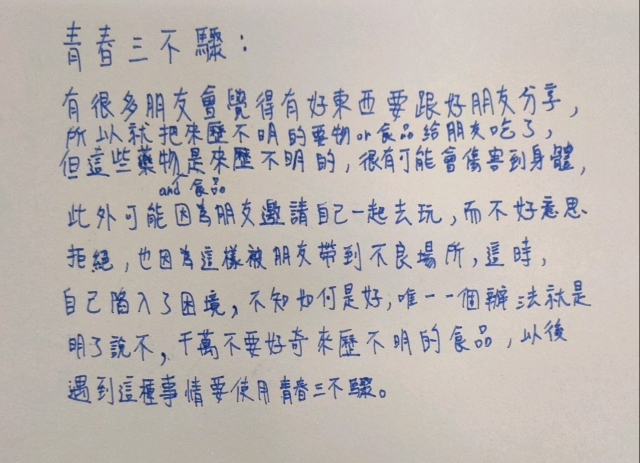 青春三不驟：
有很多朋友會覺得有好東西要跟好朋友分享，
所以就把來歷不明的藥物or食品給朋友吃了，
但這些藥物是來歷不明的，很有可能會傷害到身體，
and食品
此外可能因為朋友邀請自己一起去玩，而不好意思
拒絕，也因為這樣被朋友帶到不良場所，這時，
自己陷入了困境，不知如何是好，唯一一個辦法就是
明了說不，千萬不要好奇來歷不明的食品，以後
遇到這種事情要使用青春三不驟。